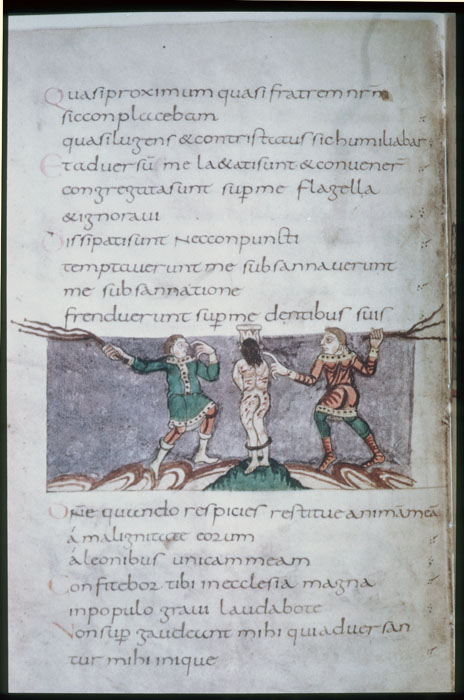 Quasi proximum quasi fratrem nrm
sic conplacebam
quasi lugens & contristatus sic humiliabar
Et adversũ me laetati sunt & convener̅
congregata sunt sup me flagella
& ignoravi
Dissipati sunt nec conpuncti
temptaverunt me subsannaverunt
me subsannatione
frenduerunt sup me dentibus suis
Dn̅e quando respicies restitue animã meã
á malignitate eorum
á leonibus unicam meam
Confitebor tibi in ecclesia magna
in populo gravi laudabo te
Non sup gaudeant mihi qui adversan
tur mihi inique